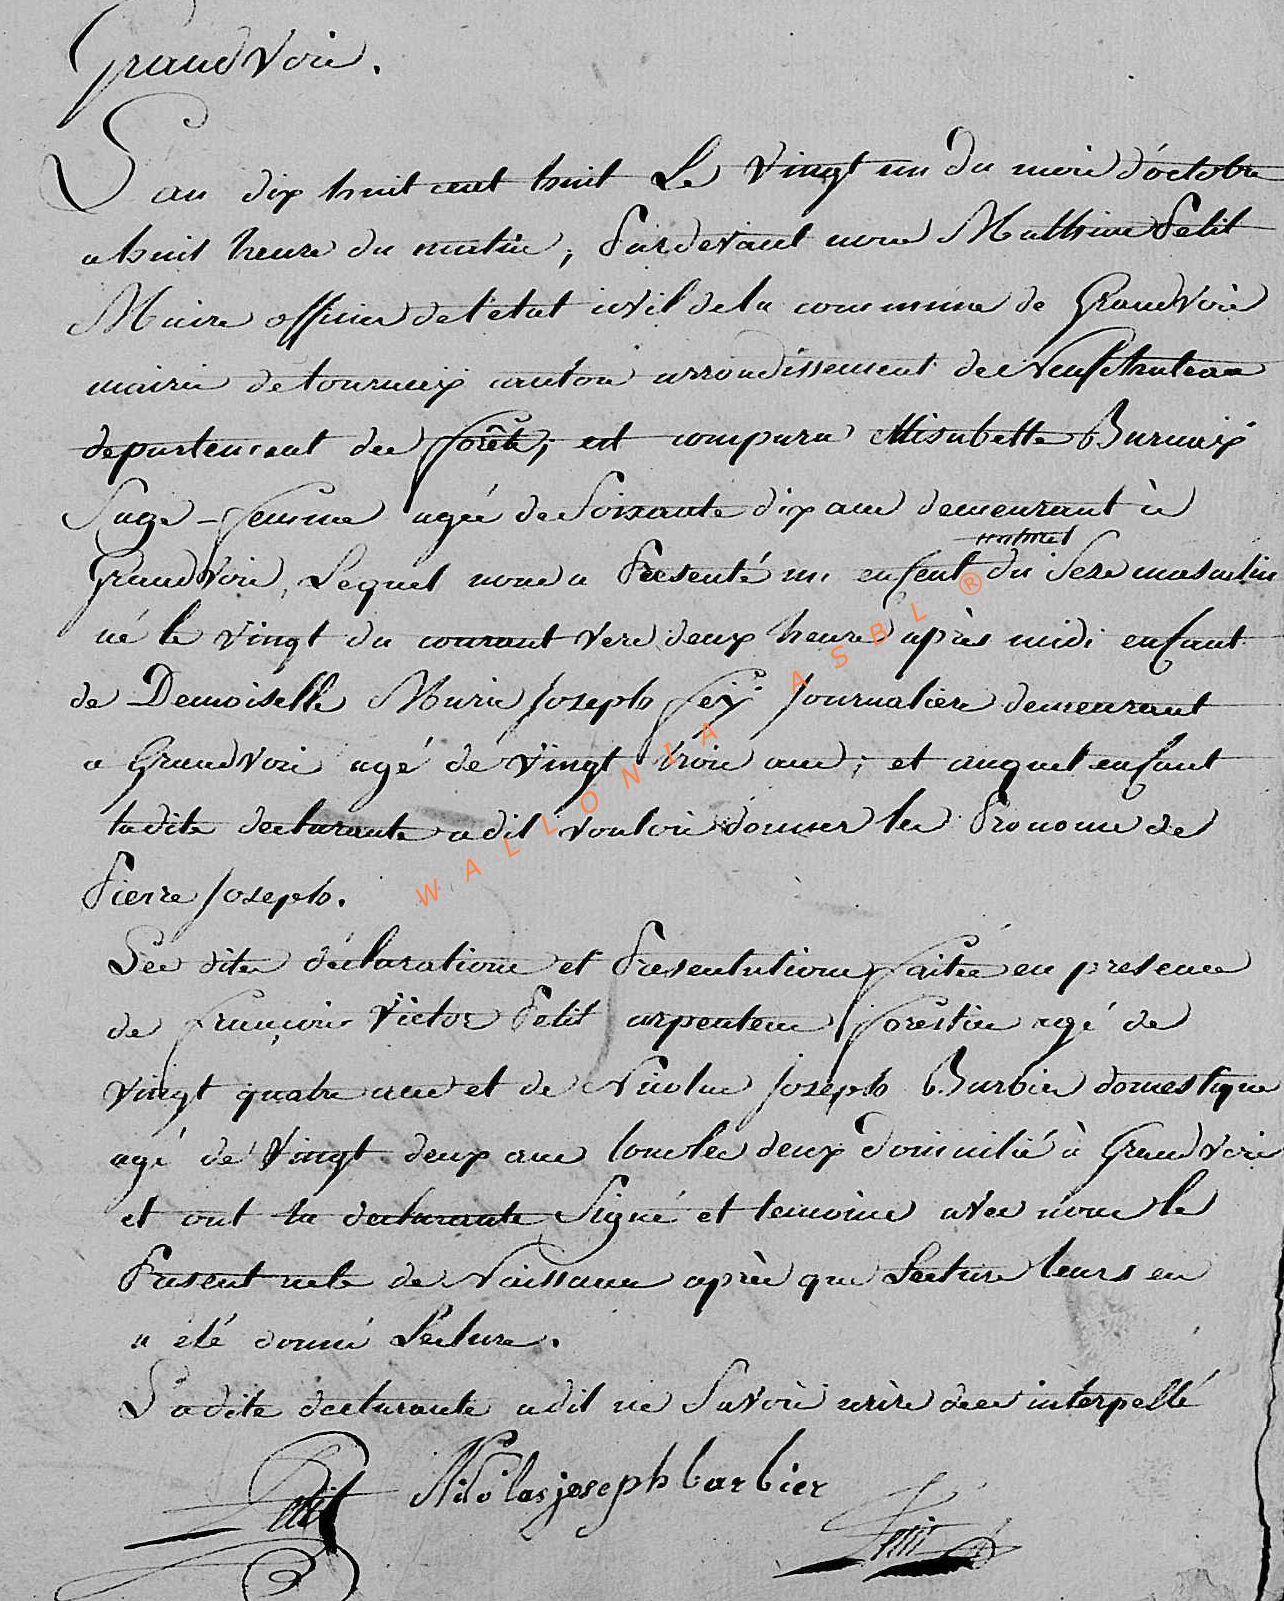 Grandvoir.
L'an dix huit cent huit Le vingt un du mois d'octobre
a huit heure du matin, Pardevant nous Mathieu Petit
Maire officier de l'état civil de la commune de Grandvoir
mairie de tournay canton arrondissement de Neufchateau
departement des forêts, est comparu Elisabette Burnaix
Sage-femme agée de Soixante dix ans demeurant à
naturel
Grandvoir, Lequel nous a Presenté un enfent du Sexe masculin
né le vingt du courant vers deux heures après midi enfant
de Demoiselle Marie Joseph journaliere demeurant
a Grandvoir agé de vingt trois ans; et auquel enfant
ladite declarante a dit vouloir donner les Pronoms de
Pierre Joseph.
Les dites déclarations et Presentations faites en presence
de François Victor Petit arpenteur forestier agé de
vingt quatre ans et de Nicolas Joseph Barbier domestique
agé de vingt deux ans tous les deux domicilié à Grandvoir
et ont la declarante Signé et temoins avec nous le
Present acte de Naissance après que Lecture leurs en
a été donné Lecture.
Ladite declarante a dit ne Savoir écrire de ce interpellé
Petit Nicolas joseph barbier Petit
WALLONIA ASBL ®